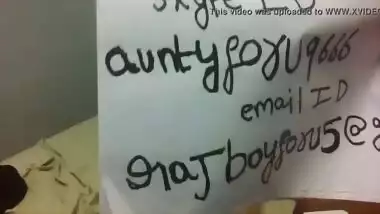 This video was uploaded to WWW.XVIDE
auntyforu9666
email ID
rajboyforu5@g